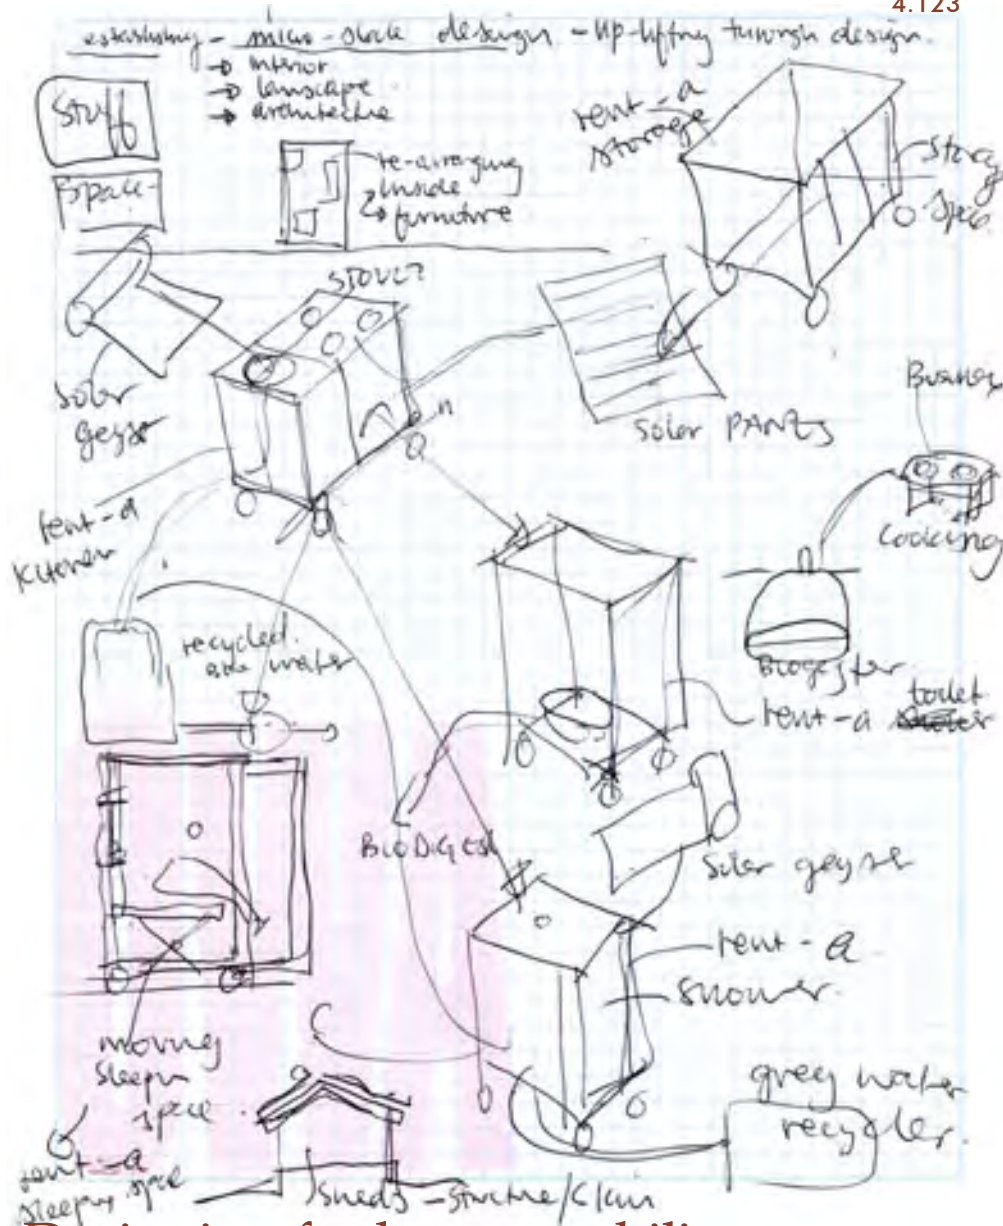 4.123
establishing - micro-stock design. - up-lifting through design.
→ interior
→ lanscape
→ architecture
Stuff
Space
re-arranging
inside
furniture
rent-a
storage
storage
space
STOVE?
solar
geyser
solar PANELS
Business
Cooking
rent-a
Kitchen
recycled
water
rent-a toilet
BIODIGEST
Solar geyser
rent-a
shower.
moving
sleepin
space.
grey water
recycler.
rent-a
sleeping space
sheds - structure/